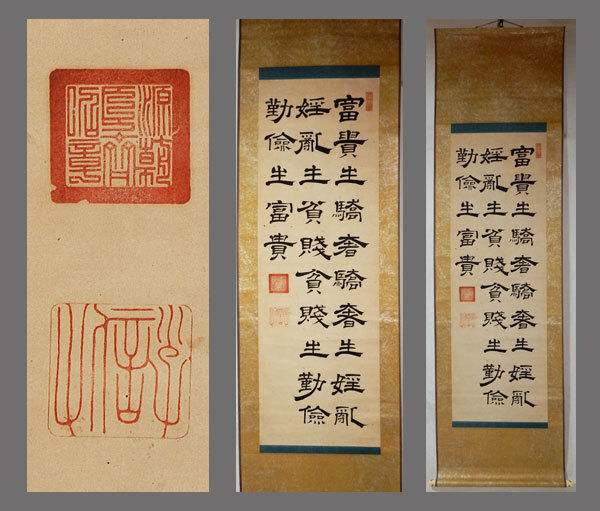 富貴生驕奢驕奢生婬亂
婬亂生貧賤貧賤生勤儉
勤儉生富貴
富貴生驕奢驕奢生婬亂
婬亂生貧賤貧賤生勤儉
勤儉生富貴